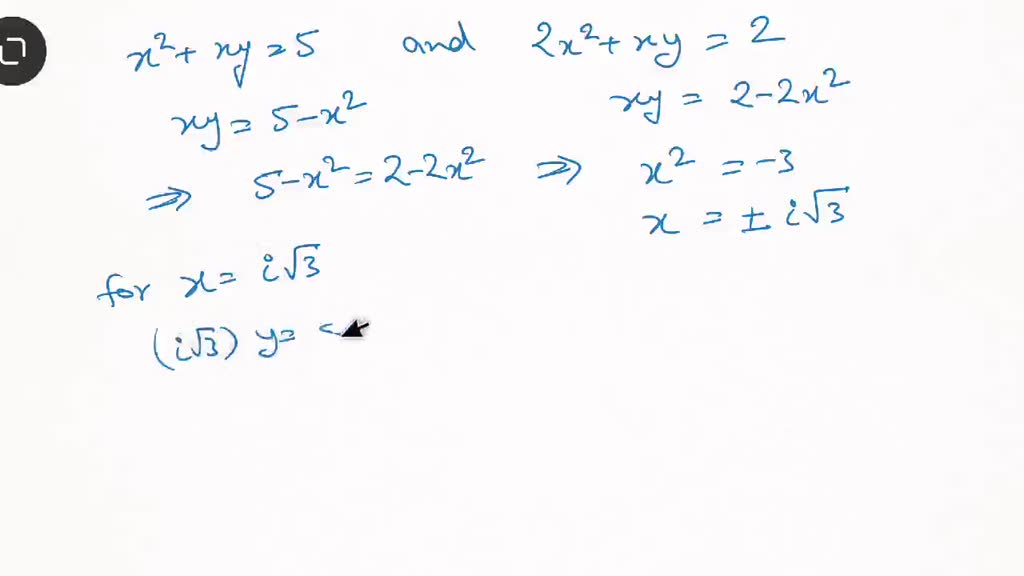 x² + xy = 5 and 2x² + xy = 2
xy = 5 - x² xy = 2 - 2x²
⇒ 5 - x² = 2 - 2x² ⇒ x² = -3
x = ± i√3
for x = i√3
(i√3) y =